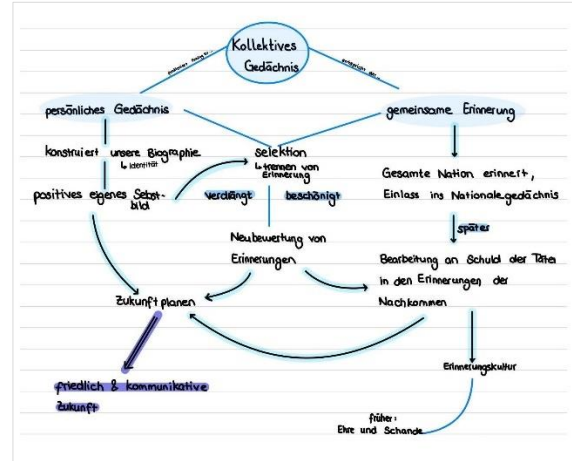 Kollektives
Gedächnis
persönliches Gedächnis
gemeinsame Erinnerung
konstruiert unsere Biographie
↳ Identität
positives eigenes Sebst-
bild
selektion
↳ trennen von
Erinnerung
verdrängt
beschönigt
Gesamte Nation erinnert,
Einlass ins Nationalegedächnis
später
Neubewertung von
Erinnerungen
Bearbeitung an Schuld der Täter
in den Erinnerungen der
Nachkommen
Zukunft planen
friedlich & kommunikative
Zukunft
Erinnerungskultur
früher:
Ehre und Schande